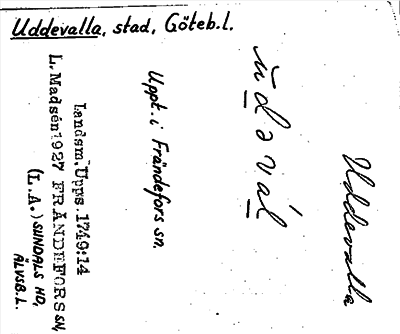 Uddevalla, stad, Göteb.l.
Uddevalla
ùd ə vál
Uppt. i Frändefors sn.
Landsm. Upps. 1749:14
L. Madsén 1927 FRÄNDEFORS SN,
(L.A.) SUNDALS HD,
ÄLVSB.L.